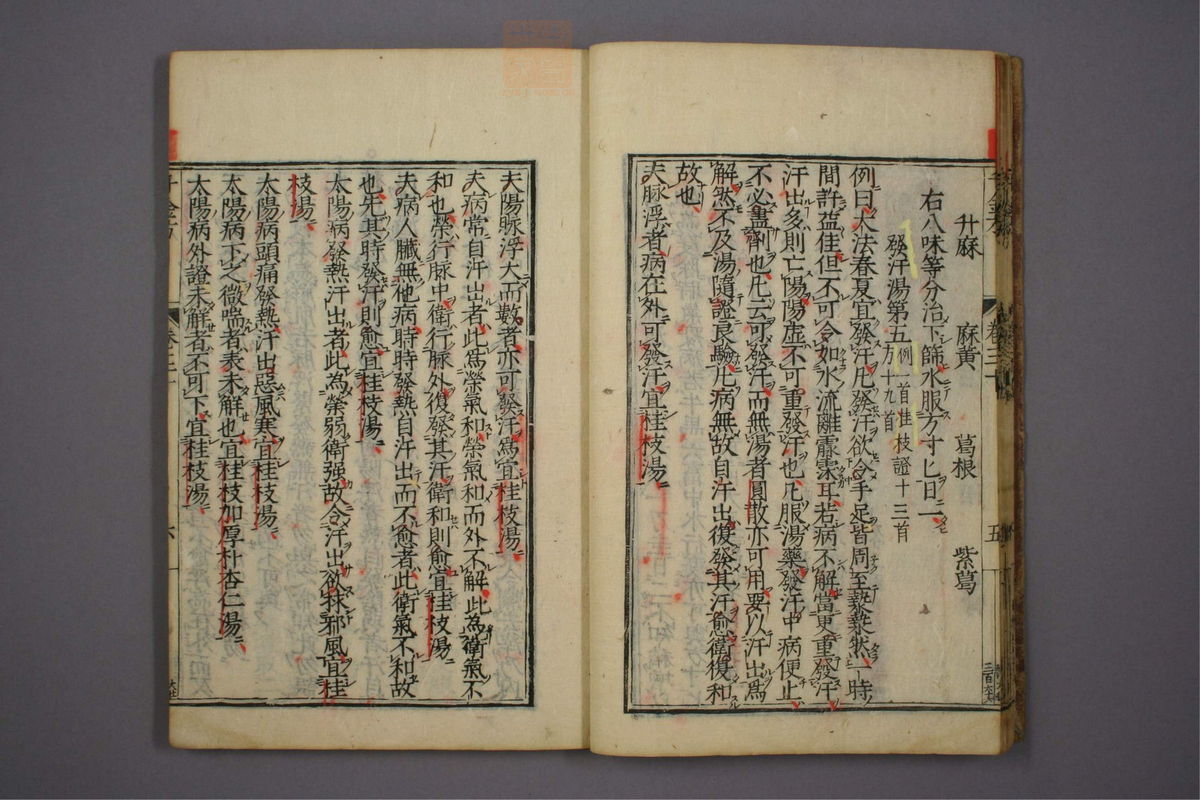 升麻　麻黄　葛根　紫葛
右八味等分治下篩水服方寸匕日二
發汗湯第五例一首桂枝證十三首
方十九首
例曰大法春夏宜發汗凡發汗欲令手足皆周至漐漐然一時
間許益佳但不可令如水流離霡霂耳若病不解當更重發汗
汗出多則亡陽陽虛不可重發汗也凡服湯藥發汗中病便止
不必盡劑也凡云可發汗而無湯者圓散亦可用要以汗出爲
解然不及湯隨證良驗凡病無故自汗出復發其汗愈衛復和
故也
夫脉浮者病在外可發汗宜桂枝湯
夫陽脉浮大而數者亦可發汗爲宜桂枝湯
夫病常自汗出者此爲榮氣和榮氣和而外不解此為衛氣不
和也榮行脉中衛行脉外復發其汗衛和則愈宜桂枝湯
夫病人臟無他病時時發熱自汗出而不愈者此衛氣不和故
也先其時發汗則愈宜桂枝湯
太陽病發熱汗出者此為榮弱衛强故令汗出欲救邪風宜桂
枝湯
太陽病頭痛發熱汗出惡風寒宜桂枝湯
太陽病下之微喘者表未解也宜桂枝加厚朴杏仁湯
太陽病外證未解者不可下宜桂枝湯
千金方　卷三十　五
千金方　卷三十　六